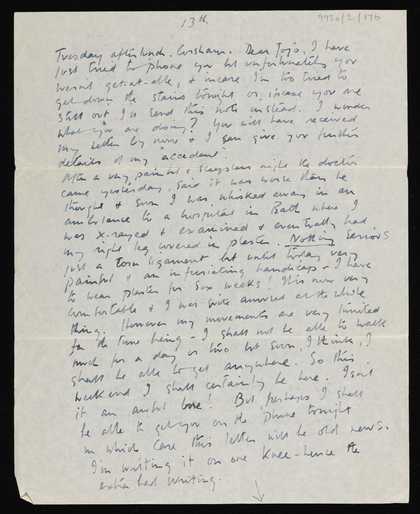 13th
9920/2/176
Tuesday afternoon. Corsham. Dear Jojo, I have
just tried to phone you but unfortunately you
weren't get-at-able, & incase I'm too tired to
get down the stairs tonight or, incase you are
still out I'll send this note instead. I wonder
what you are doing? You will have received
my letter by now & I can give you further
details of my accident.
After a very painful & sleepless night the doctor
came yesterday, said it was worse than he
thought & soon I was whisked away in an
ambulance to a hospital in Bath where I
was x-rayed & examined & eventually had
my right leg covered in plaster. Nothing serious
just a torn ligament but until today very
painful & an infuriating handicap - I have
to wear plaster for six weeks! It's now very
comfortable & I was quite amused at the whole
thing. However my movements are very limited
for the time being - I shall not be able to walk
much for a day or two but soon, I think, I
shall be able to get anywhere. So this
weekend I shall certainly be here. Isn't
it an awful bore! But perhaps I shall
be able to get you on the 'phone tonight
in which case this letter will be old news.
I'm writing it on one knee - hence the
extra bad writing.